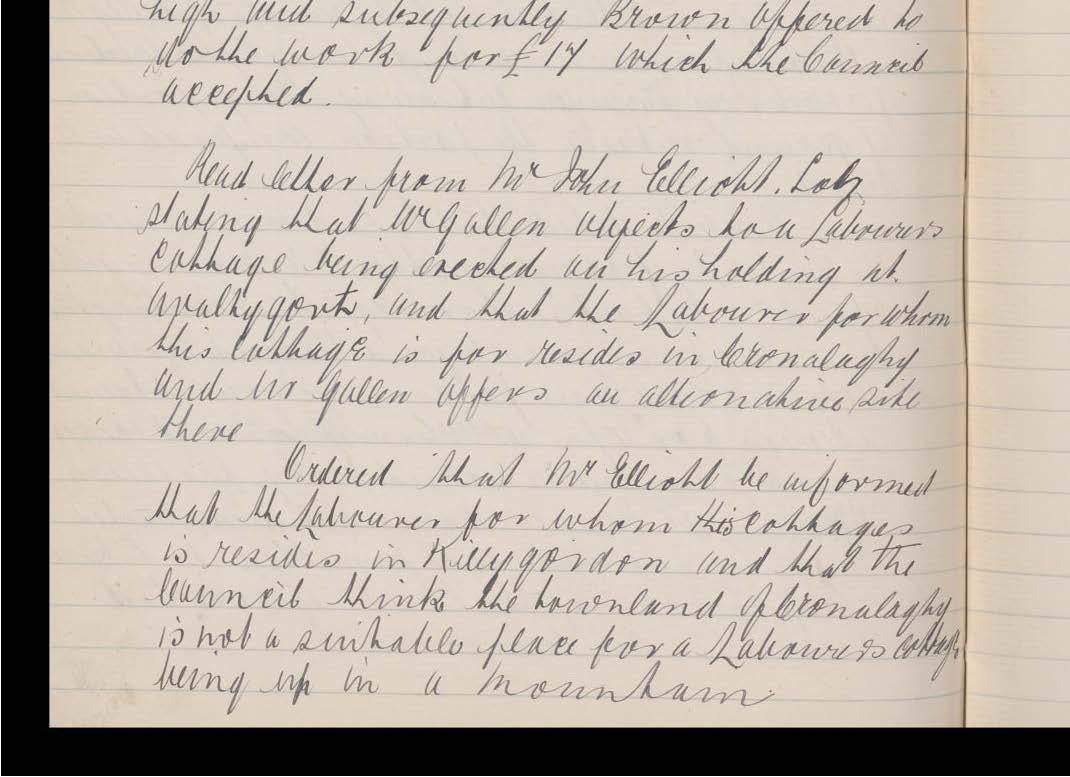 high and subsequently Brown offered to
do the work for £17 which the Council
accepted.
Read letter from Mr John Elliott. Solr
stating that Mr Gallen objects to a Labourers
cottage being erected on his holding at
avaltygort, and that the Labourer for whom
this Cottage is for resides in Cronalaghy
and Mr Gallen offers an alternative site
there
Ordered that Mr Elliott be informed
that the Labourer for whom this cottages
is resides in Killygordon and that the
Council think the townland of Cronalaghy
is not a suitable place for a Labourers cottage
being up in a mountain